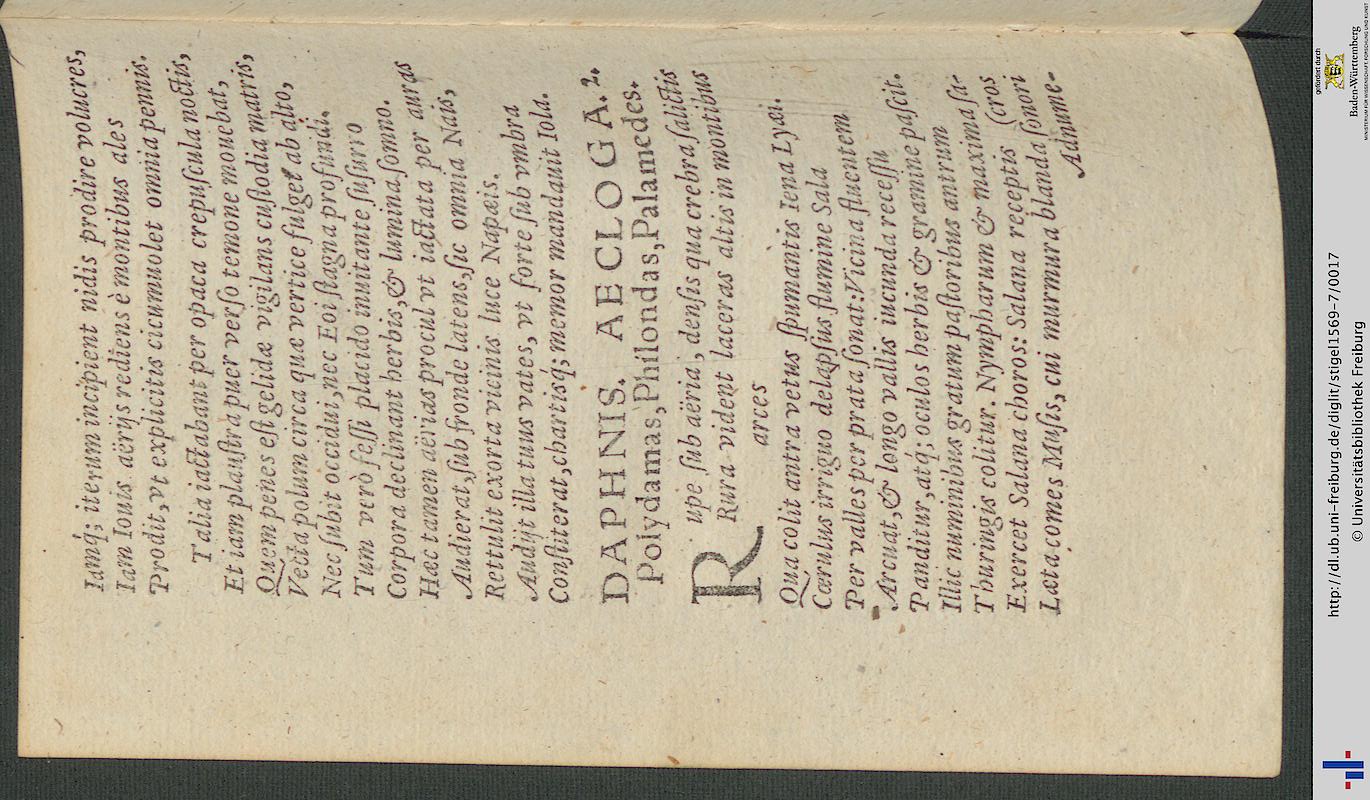 Iamq́; iterum incipient nidis prodire volucres,
Iam Iouis aërijs rediens è montibus ales
Prodit, vt explicitis cicumuolet omnia pennis.
Talia iactabant per opaca crepuſcula noctis,
Et iam plauſtra puer verſo temone mouebat,
Quem penes eſt gelidæ vigilans cuſtodia matris,
Vecta polum circa quæ vertice fulget ab alto,
Nec ſubit occidui, nec Eoi ſtagna profundi.
Tum verò feſſi placido inuitante ſuſurro
Corpora declinant herbis, & lumina ſomno.
Hæc tamen aërias procul vt iactata per auras
Audierat, ſub fronde latens, ſic omnia Nais,
Rettulit exorta vicinis luce Napæis.
Audijt illa tuus vates, vt forte ſub vmbra
Conſtiterat, chartisq́; memor mandauit Iola.
DAPHNIS. AECLOGA. 2.
Polydamas, Philondas, Palamedes.
Rupe ſub aëria, denſis qua crebra ſalictis
Rura vident laceras altis in montibus
arces
Qua colit antra vetus ſpumantis Iena Lyæi.
Cærulus irriguo delapſus flumine Sala
Per valles per prata ſonat: Vicina fluentem
Arcuat, & longo vallis iucunda receſſu
Panditur, atq́; oculos herbis & gramine paſcit.
Illic numinibus gratum paſtoribus antrum
Thuringis colitur. Nympharum & maxima ſa-
Exercet Salana choros: Salana receptis (cros
Læta comes Muſis, cui murmura blanda ſonori
Adnume-
gefördert durch
Baden-Württemberg
MINISTERIUM FÜR WISSENSCHAFT, FORSCHUNG UND KUNST
http://dl.ub.uni-freiburg.de/diglit/stigel1569-7/0017
© Universitätsbibliothek Freiburg